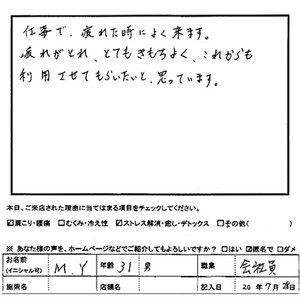 仕事で、疲れた時によく来ます。
疲れがとれ、とてもきもちよく、これからも
利用させてもらいたいと、思っています。
本日、ご来店された理由に当てはまる項目をチェックしてください。
☑肩こり・腰痛 □むくみ・冷え性 ☑ストレス解消・癒し・デトックス □その他( )
※ あなた様の声を、ホームページなどでご紹介してもよろしいですか? □はい ☑匿名で □ダメ
お名前 (イニシャル可) M.Y 年齢 31 男 職業 会社員
施術名 店舗名 記入日 20年7月28日